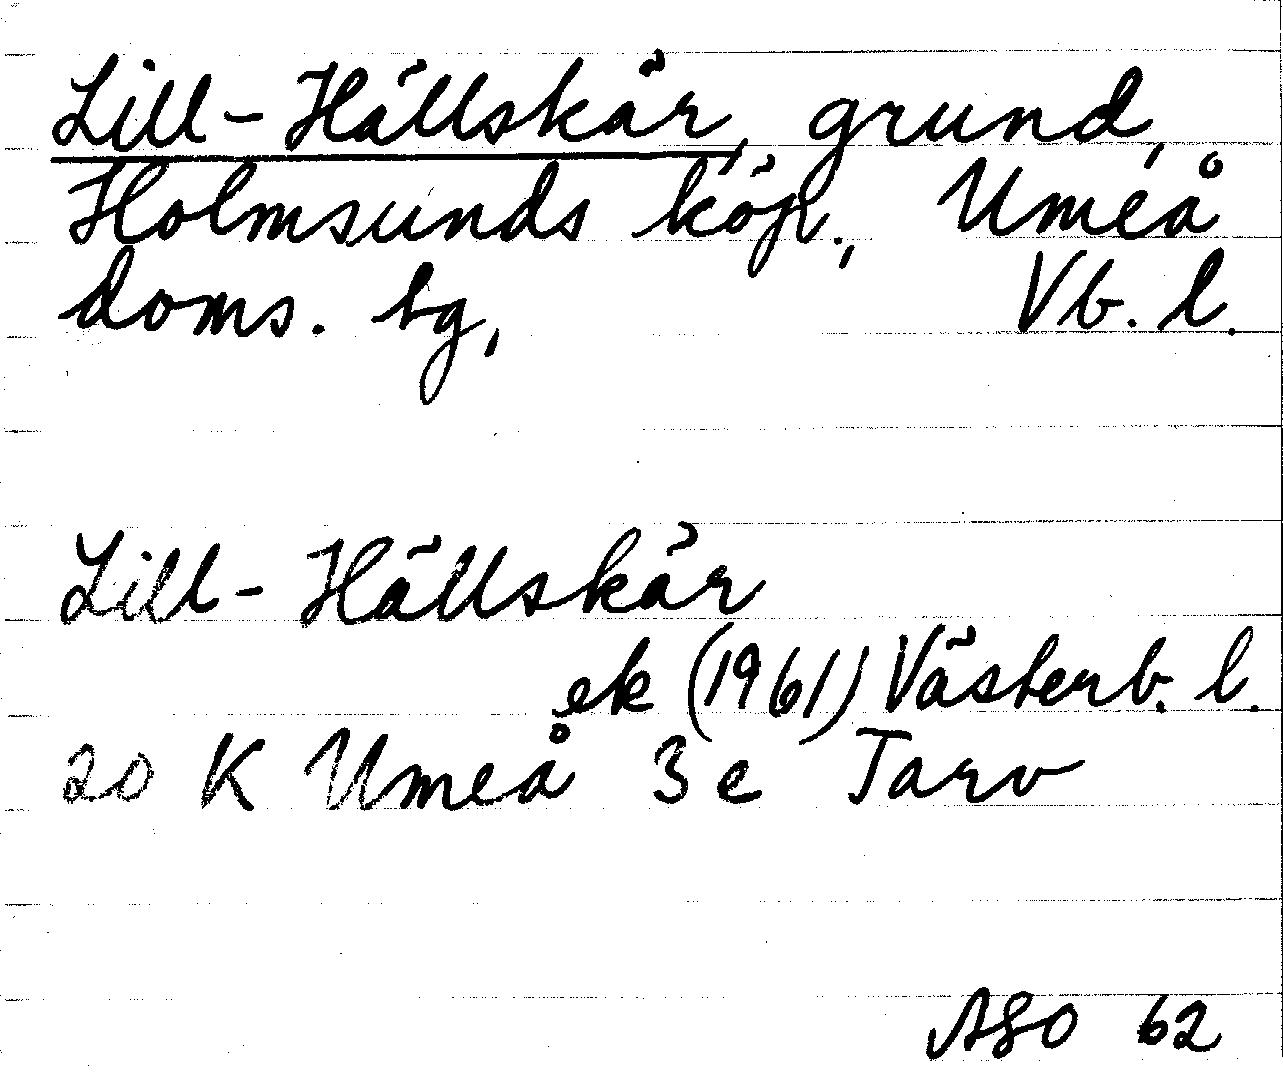 Lill-Hällskär, grund,
Holmsunds köp., Umeå
doms. tg, Vb. l.
Lill-Hällskär
ek (1961) Västerb. l.
20 K Umeå 3 e Tarv
ASO 62